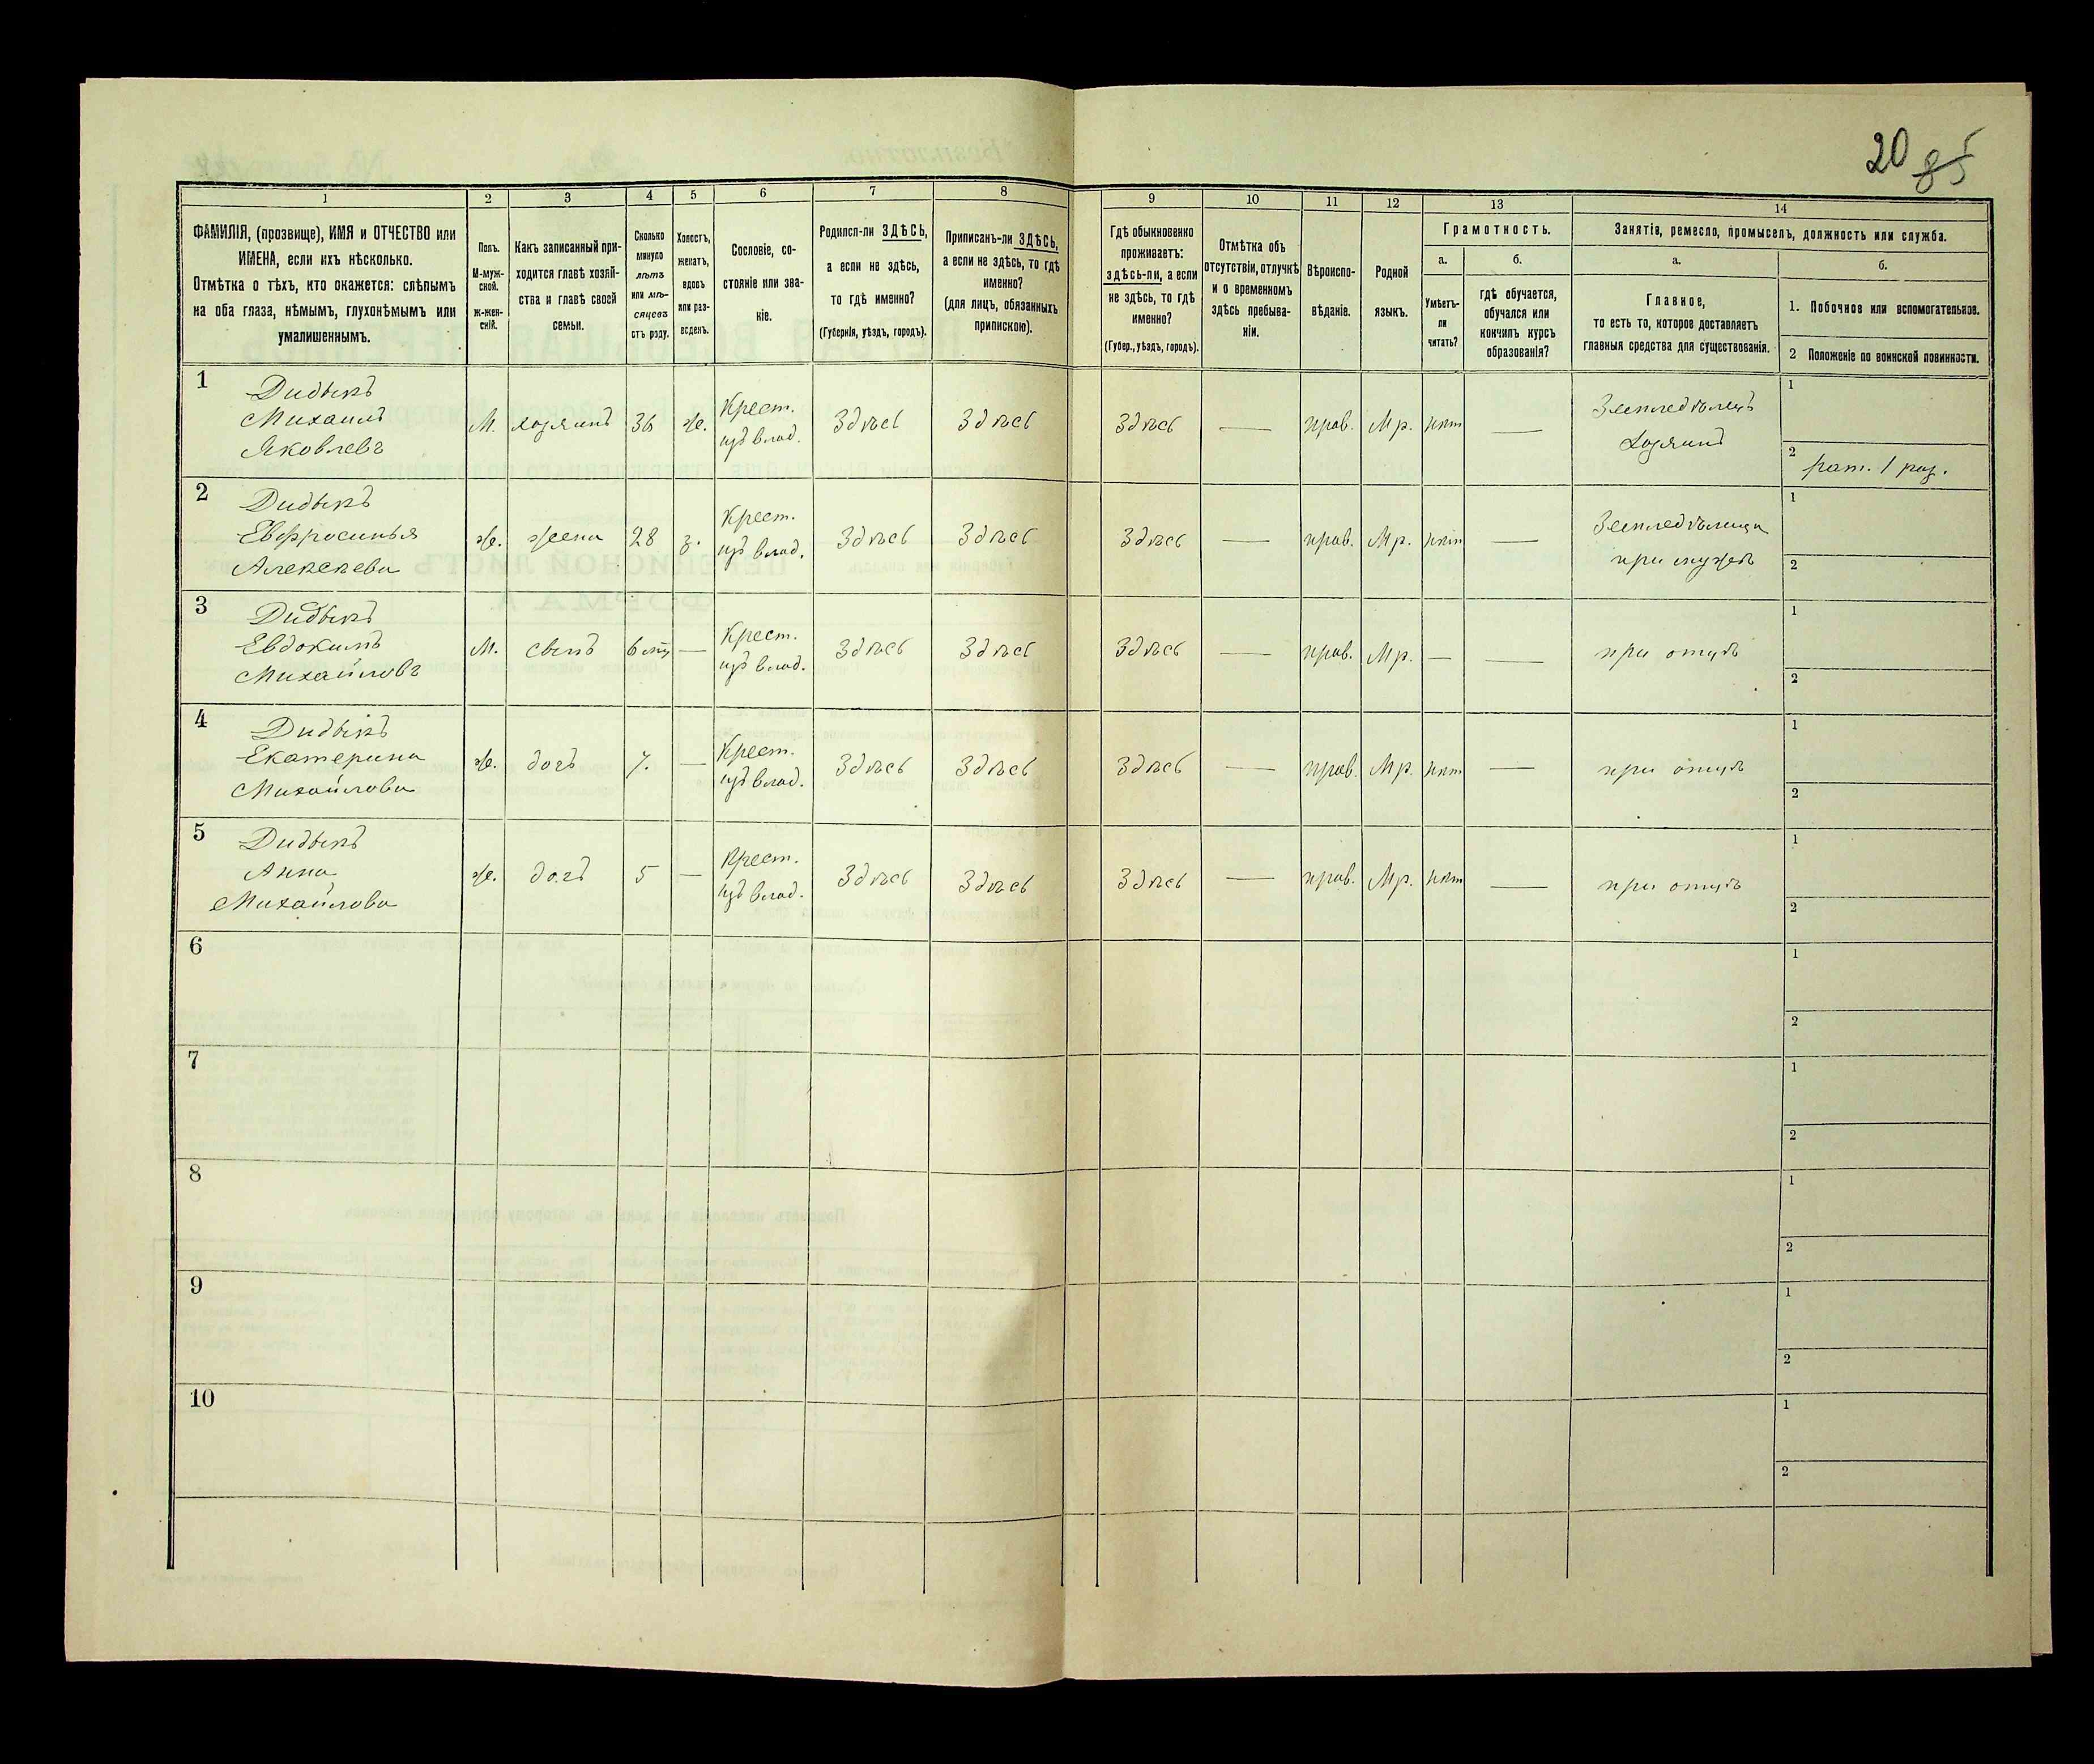 20 85
1 2 3 4 5 6 7 8 9 10 11 12 13 14
ФАМИЛІЯ, (прозвище), ИМЯ и ОТЧЕСТВО или
ИМЕНА, если ихъ нѣсколько.
Отмѣтка о тѣхъ, кто окажется: слѣпымъ
на оба глаза, нѣмымъ, глухонѣмымъ или
умалишеннымъ.
Полъ.
М-муж-
ской.
ж-жен-
скій.
Какъ записанный при-
ходится главѣ хозяй-
ства и главѣ своей
семьи.
Сколько
минуло
лѣтъ
или мѣ-
сяцевъ
отъ роду.
Холостъ,
женатъ,
вдовъ
или раз-
веденъ.
Сословіе, со-
стояніе или зва-
ніе.
Родился-ли ЗДѢСЬ,
а если не здѣсь,
то гдѣ именно?
(Губернія, уѣздъ, городъ).
Приписанъ-ли ЗДѢСЬ,
а если не здѣсь, то гдѣ
именно?
(для лицъ, обязанныхъ
припискою).
Гдѣ обыкновенно
проживаетъ:
здѣсь-ли, а если
не здѣсь, то гдѣ
именно?
(Губер., уѣздъ, городъ).
Отмѣтка объ
отсутствіи, отлучкѣ
и о временномъ
здѣсь пребыва-
ніи.
Вѣроиспо-
вѣданіе.
Родной
языкъ.
Грамотность.
а.
Умѣетъ-
ли
читать?
б.
гдѣ обучается,
обучался или
кончилъ курсъ
образованія?
Занятіе, ремесло, промыселъ, должность или служба.
а.
Главное,
то есть то, которое доставляетъ
главныя средства для существованія.
б.
1. Побочное или вспомогательное.
2 Положеніе по воинской повинности.
1
Дидыкъ
Михаилъ
Яковлевъ
М. хозяинъ 36 ж.
Крест.
изъ влад.
Здѣсь Здѣсь Здѣсь — прав. Мр. нѣт —
Земледѣлецъ
Хозяинъ
1
2 рат. 1 раз.
2
Дидыкъ
Евфросинья
Алексѣева
ж. жена 28 з.
Крест.
изъ влад.
Здѣсь Здѣсь Здѣсь — прав. Мр. нѣт —
Земледѣлица
при мужѣ
1
2
3
Дидыкъ
Евдокимъ
Михайловъ
М. сынъ 6 мц —
Крест.
изъ влад.
Здѣсь Здѣсь Здѣсь — прав. Мр. — —
при отцѣ
1
2
4
Дидыкъ
Екатерина
Михайлова
ж. дочь 7. —
Крест.
изъ влад.
Здѣсь Здѣсь Здѣсь — прав. Мр. нѣт —
при отцѣ
1
2
5
Дидыкъ
Анна
Михайлова
ж. дочь 5 —
Крест.
изъ влад.
Здѣсь Здѣсь Здѣсь — прав. Мр. нѣт —
при отцѣ
1
2
6
1
2
7
1
2
8
1
2
9
1
2
10
1
2